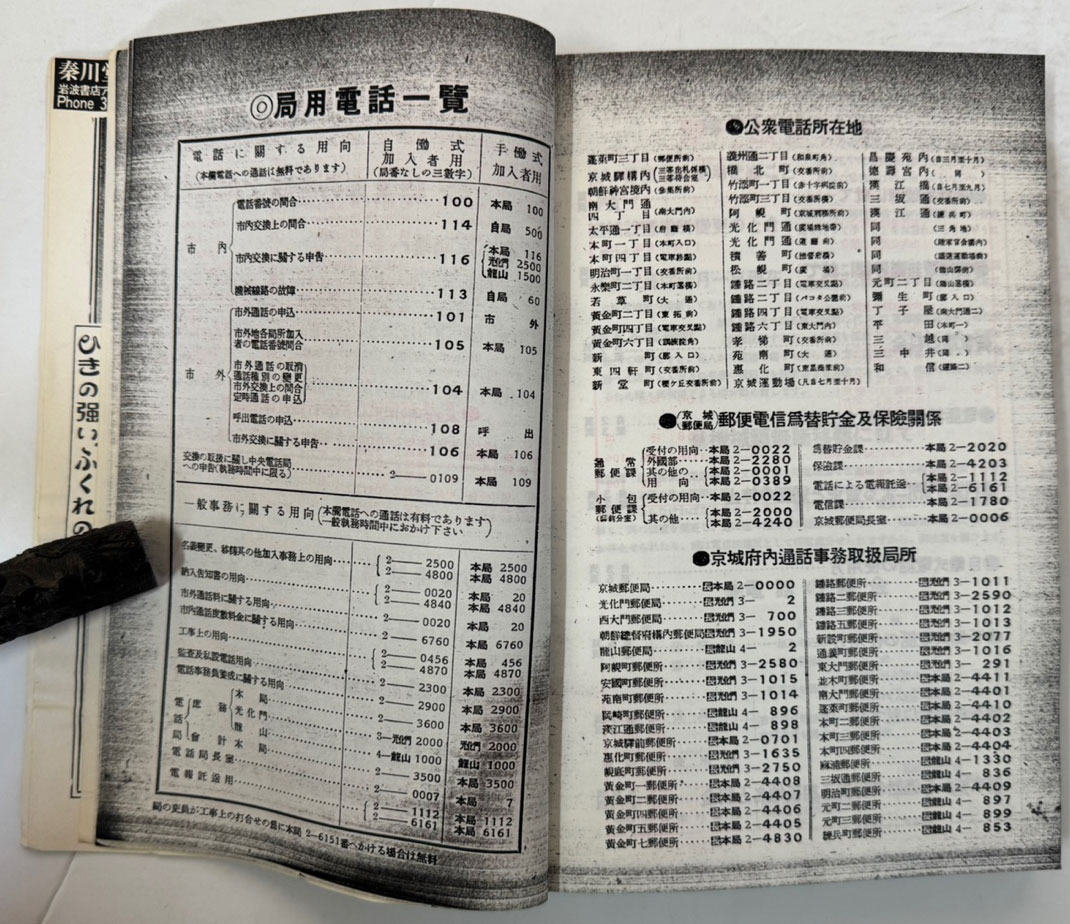 秦川堂
岩波書店ア
Phone 3
ひきの强い、ふくれの
◎局用電話一覽
電話に關する用向
(本欄電話への通話は無料であります)
自働式
加入者用
(局番なしの三數字)
手働式
加入者用
市內
電話番號の間合 100 本局 100
市內交換上の間合 114 自局 500
市內交換に關する申告 116 本局 116
光化門 2500
龍山 1500
機械線路の故障 113 自局 60
市外
市外通話の申込 101 市外
市外地各局所加入
者の電話番號間合 105 本局 105
市外通話の取消
通話種別の變更
市外交換上の間合
定時通話の申込 104 本局 104
呼出電話の申込 108 呼出
市外交換に關する申告 106 本局 106
交換の取扱に關し中央電話局
への申告(執務時間中に限る) 2—0109 本局 109
一般事務に關する用向(本欄電話への通話は有料であります
一般執務時間中におかけ下さい)
名義變更、移轉其の他加入事務上の用向 2—2500 本局 2500
2—4800 本局 4800
納入告知書の用向 2—0020 本局 20
2—4840 本局 4840
市外通話料に關する用向 2—0020 本局 20
市內通話度數料金に關する用向 2—6760 本局 6760
工事上の用向 2—0456 本局 456
2—4870 本局 4870
監査及私設電話用向 2—2300 本局 2300
電話事務員養成に關する用向 2—2900 本局 2900
電話局
庶務
本局 2—3600 本局 3600
光化門 3—光化門 2000 光化門 2000
龍山 4—龍山 1000 龍山 1000
會計 本局 2—3500 本局 3500
電話局長室 2—0007 本局 7
電報託送用 2—1112 本局 1112
2—6161 本局 6161
局の吏員が工事上の打合せの爲に本局 2—6151番へかける場合は無料
●公衆電話所在地
蓬萊町三丁目(郵便所前)
京城驛構內(三等出札係橫
三等待合室)
朝鮮神宮境內(參集所前)
南大門通
四丁目(南大門內)
太平通一丁目(府廳橫)
本町一丁目(本町入口)
本町四丁目(電車終點)
明治町一丁目(交番所前)
永樂町二丁目(本町署橫)
若草町(大通)
黃金町二丁目(東拓前)
黃金町四丁目(電車交叉點)
黃金町六丁目(訓練院角)
新町(廓入口)
東四軒町(交番所前)
新堂町(櫻ケ丘交番所前)
義州通二丁目(和泉町角)
橋北町(交番所前)
竹添町一丁目(赤十字病院前)
竹添町三丁目(交番所橫)
阿峴町(京城刑務所前)
光化門通(廣場綠地帶)
光化門通(遞廳前)
積善町(總督府橫)
松峴町(廣場)
鍾路二丁目(電車交叉點)
鍾路二丁目(パコタ公園前)
鍾路四丁目(電車交叉點)
鍾路六丁目(東大門內)
孝悌町(交番所前)
苑南町(大通)
惠化町(東星商業前)
京城運動場(凡自七月至十月)
昌慶苑內(自三月至十月)
德壽宮內(同)
漢江橋(自七月至九月)
三坂通(交番所前)
漢江通(練兵町)
同(三角地)
同(陸軍官舍構內)
同(鐵道運動場前)
同(龍山驛前)
元町二丁目(龍山署橫)
彌生町(廓入口)
丁子屋(南大門通二)
平田(本町一)
三越(同)
三中井(同)
和信(鍾路二)
●(京城
郵便局)郵便電信爲替貯金及保險關係
通常
郵便課
受付の用向 本局 2—0022
外國部 本局 2—2280
其の他の 本局 2—0001
用向 本局 2—0389
小包
郵便課
(驛前分室)
受付の用向 本局 2—0022
其の他 本局 2—2000
本局 2—4240
爲替貯金課 本局 2—2020
保險課 本局 2—4203
電話による電報託送 本局 2—1112
本局 2—6161
電信課 本局 2—1780
京城郵便局長室 本局 2—0006
●京城府內通話事務取扱局所
京城郵便局 本局 2—0000
光化門郵便局 光化門 3— 2
西大門郵便局 光化門 3— 700
朝鮮總督府構內郵便局 光化門 3—1950
龍山郵便局 龍山 4— 2
阿峴町郵便所 光化門 3—2580
安國町郵便所 光化門 3—1015
苑南町郵便所 光化門 3—1014
岡崎町郵便所 龍山 4— 896
漢江通郵便所 龍山 4— 898
京城驛前郵便所 本局 2—0701
惠化町郵便所 光化門 3—1635
峴底町郵便所 光化門 3—2750
黃金町一郵便所 本局 2—4408
黃金町二郵便所 本局 2—4407
黃金町四郵便所 本局 2—4406
黃金町五郵便所 本局 2—4405
黃金町七郵便所 本局 2—4830
鍾路郵便所 光化門 3—1011
鍾路二郵便所 光化門 3—2590
鍾路三郵便所 光化門 3—1012
鍾路五郵便所 光化門 3—1013
新設町郵便所 光化門 3—2077
通義町郵便所 光化門 3—1016
東大門郵便所 光化門 3— 291
並木町郵便所 本局 2—4411
南大門郵便所 本局 2—4401
蓬萊町郵便所 本局 2—4410
本町二郵便所 本局 2—4402
本町三郵便所 本局 2—4403
本町四郵便所 本局 2—4404
麻浦郵便所 龍山 4—1330
三坂通郵便所 龍山 4— 836
明治町郵便所 本局 2—4409
元町二郵便所 龍山 4— 897
元町三郵便所 龍山 4— 899
練兵町郵便所 龍山 4— 853